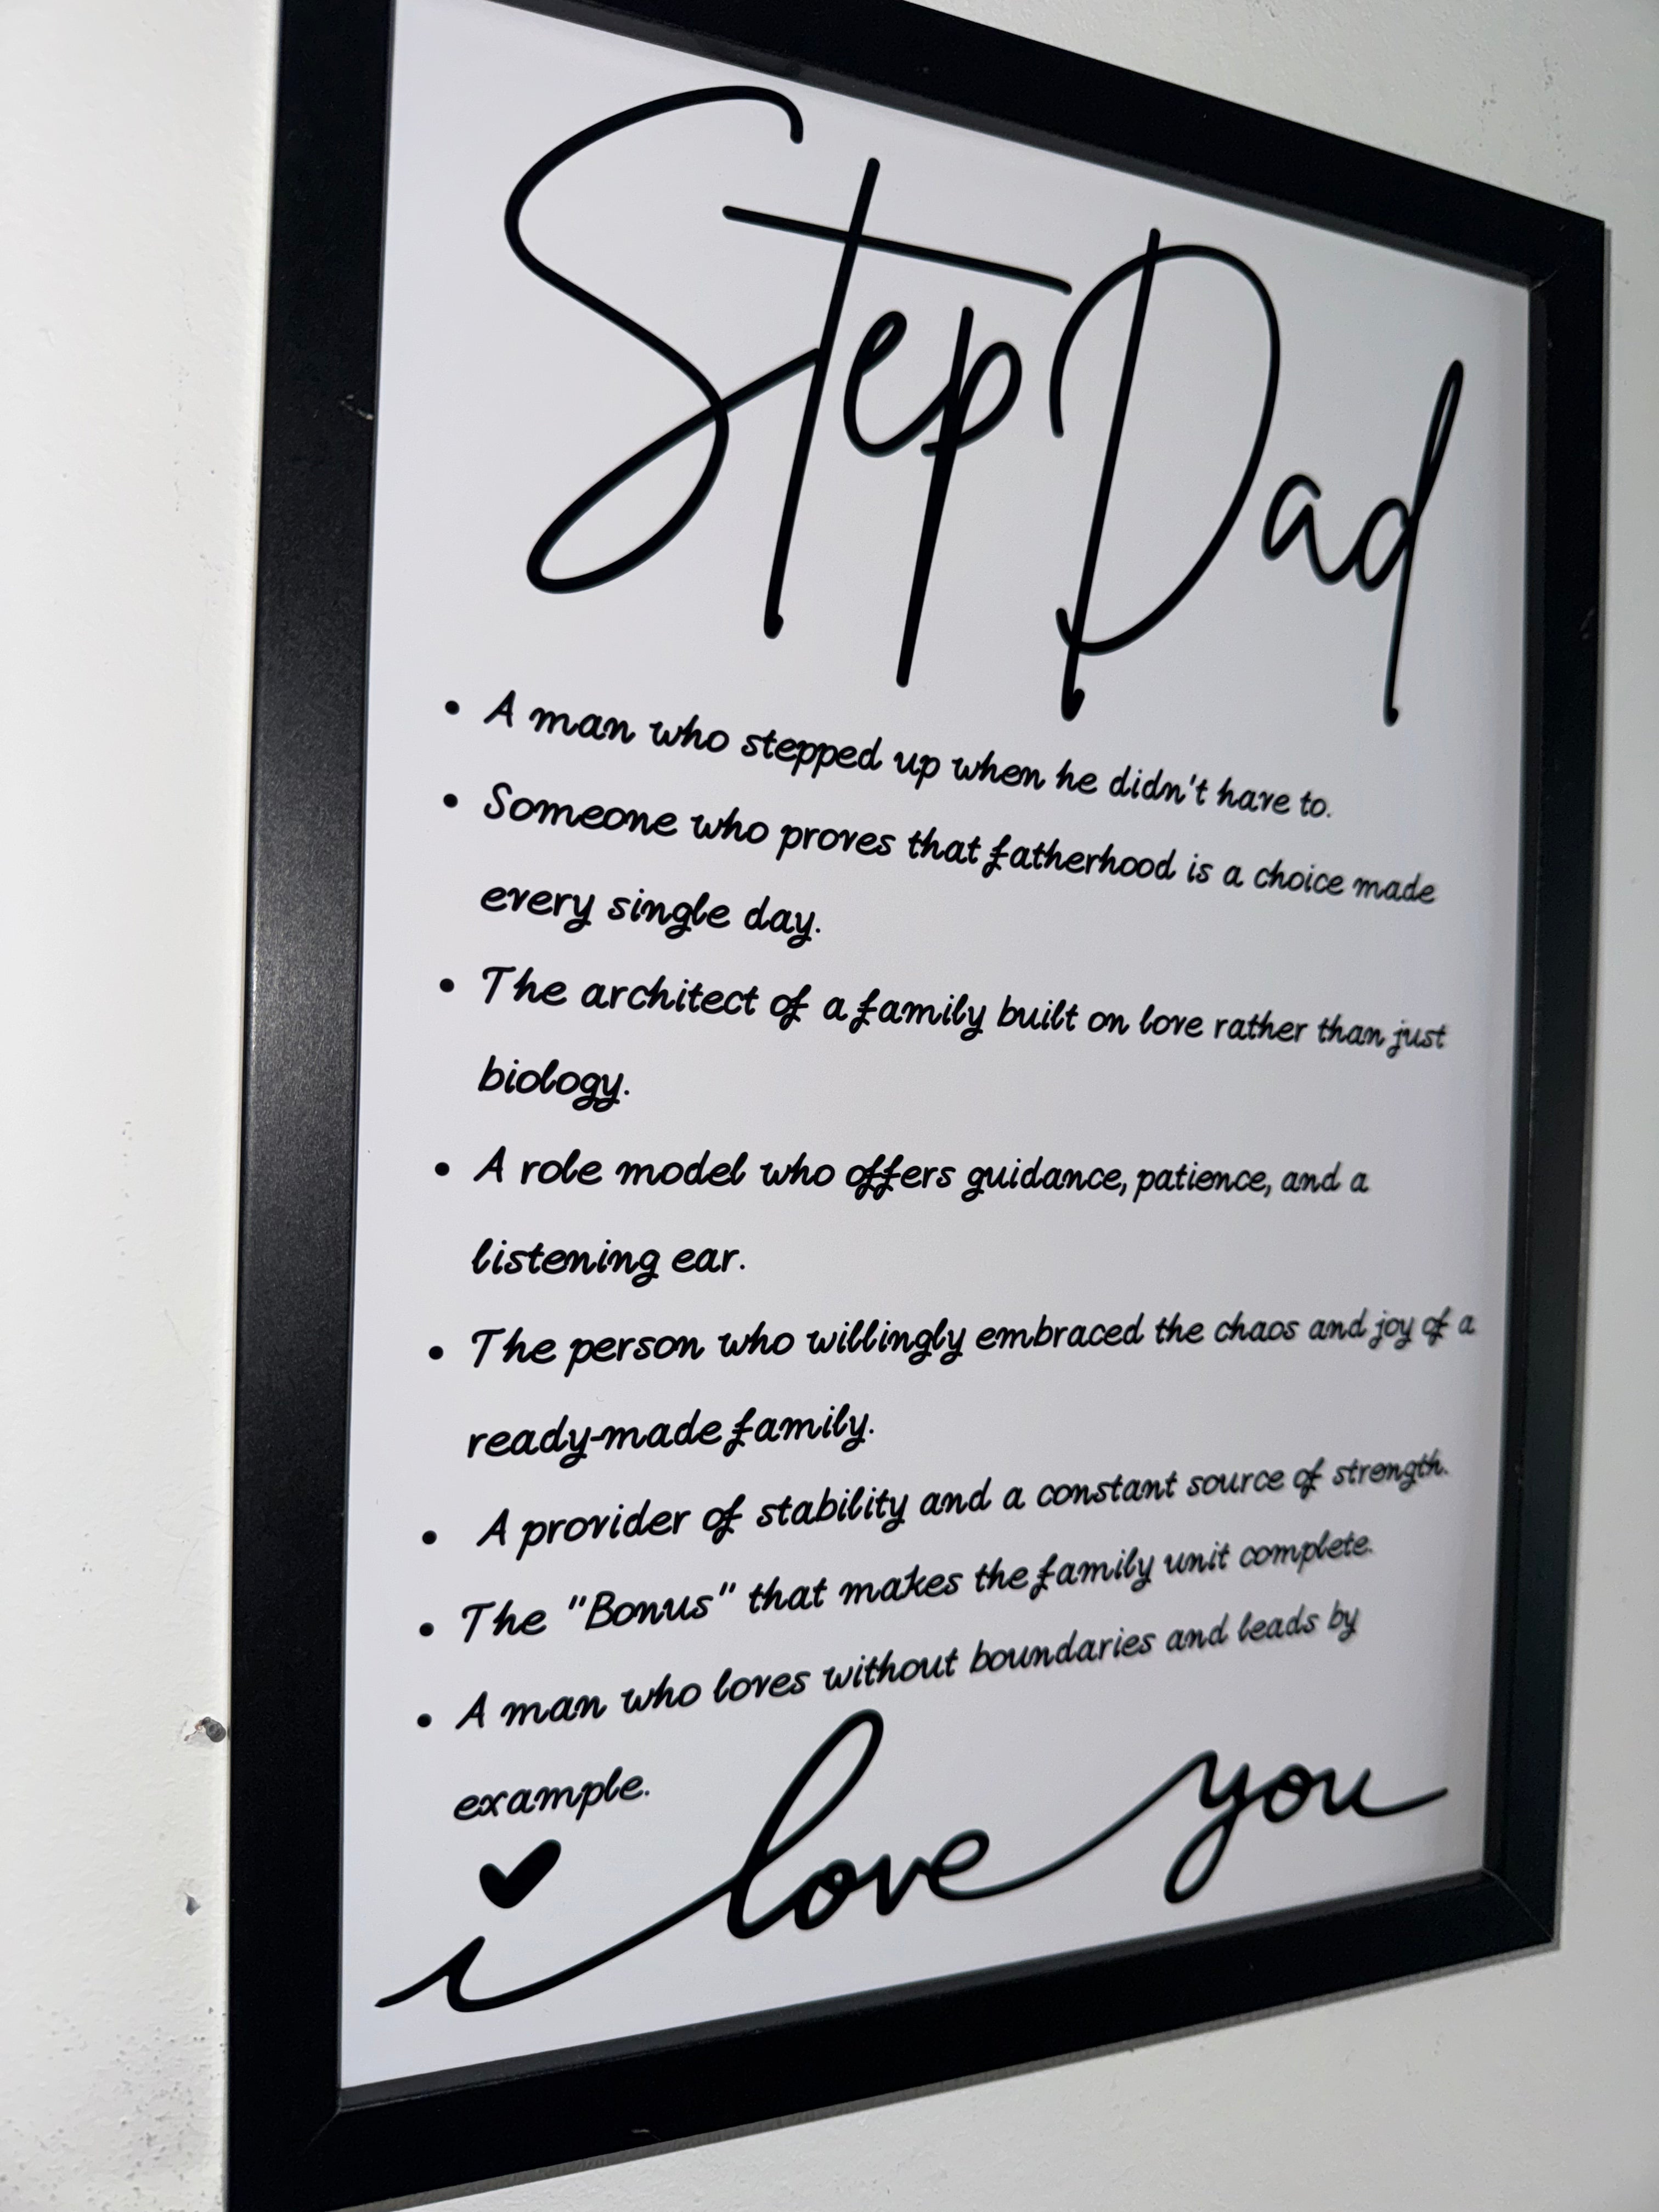 Step Dad
• A man who stepped up when he didn't have to.
• Someone who proves that fatherhood is a choice made
every single day.
• The architect of a family built on love rather than just
biology.
• A role model who offers guidance, patience, and a
listening ear.
• The person who willingly embraced the chaos and joy of a
ready-made family.
• A provider of stability and a constant source of strength.
• The "Bonus" that makes the family unit complete.
• A man who loves without boundaries and leads by
example.
i love you